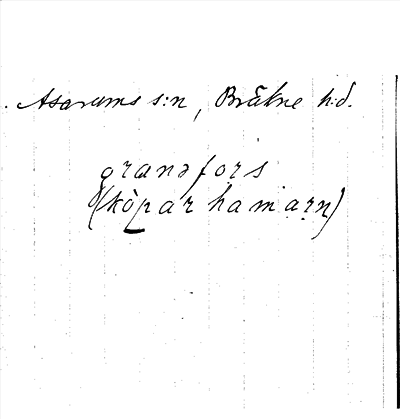 Asarums s:n, Bräkne h:d.
grandfors
(kòpar hamarn)